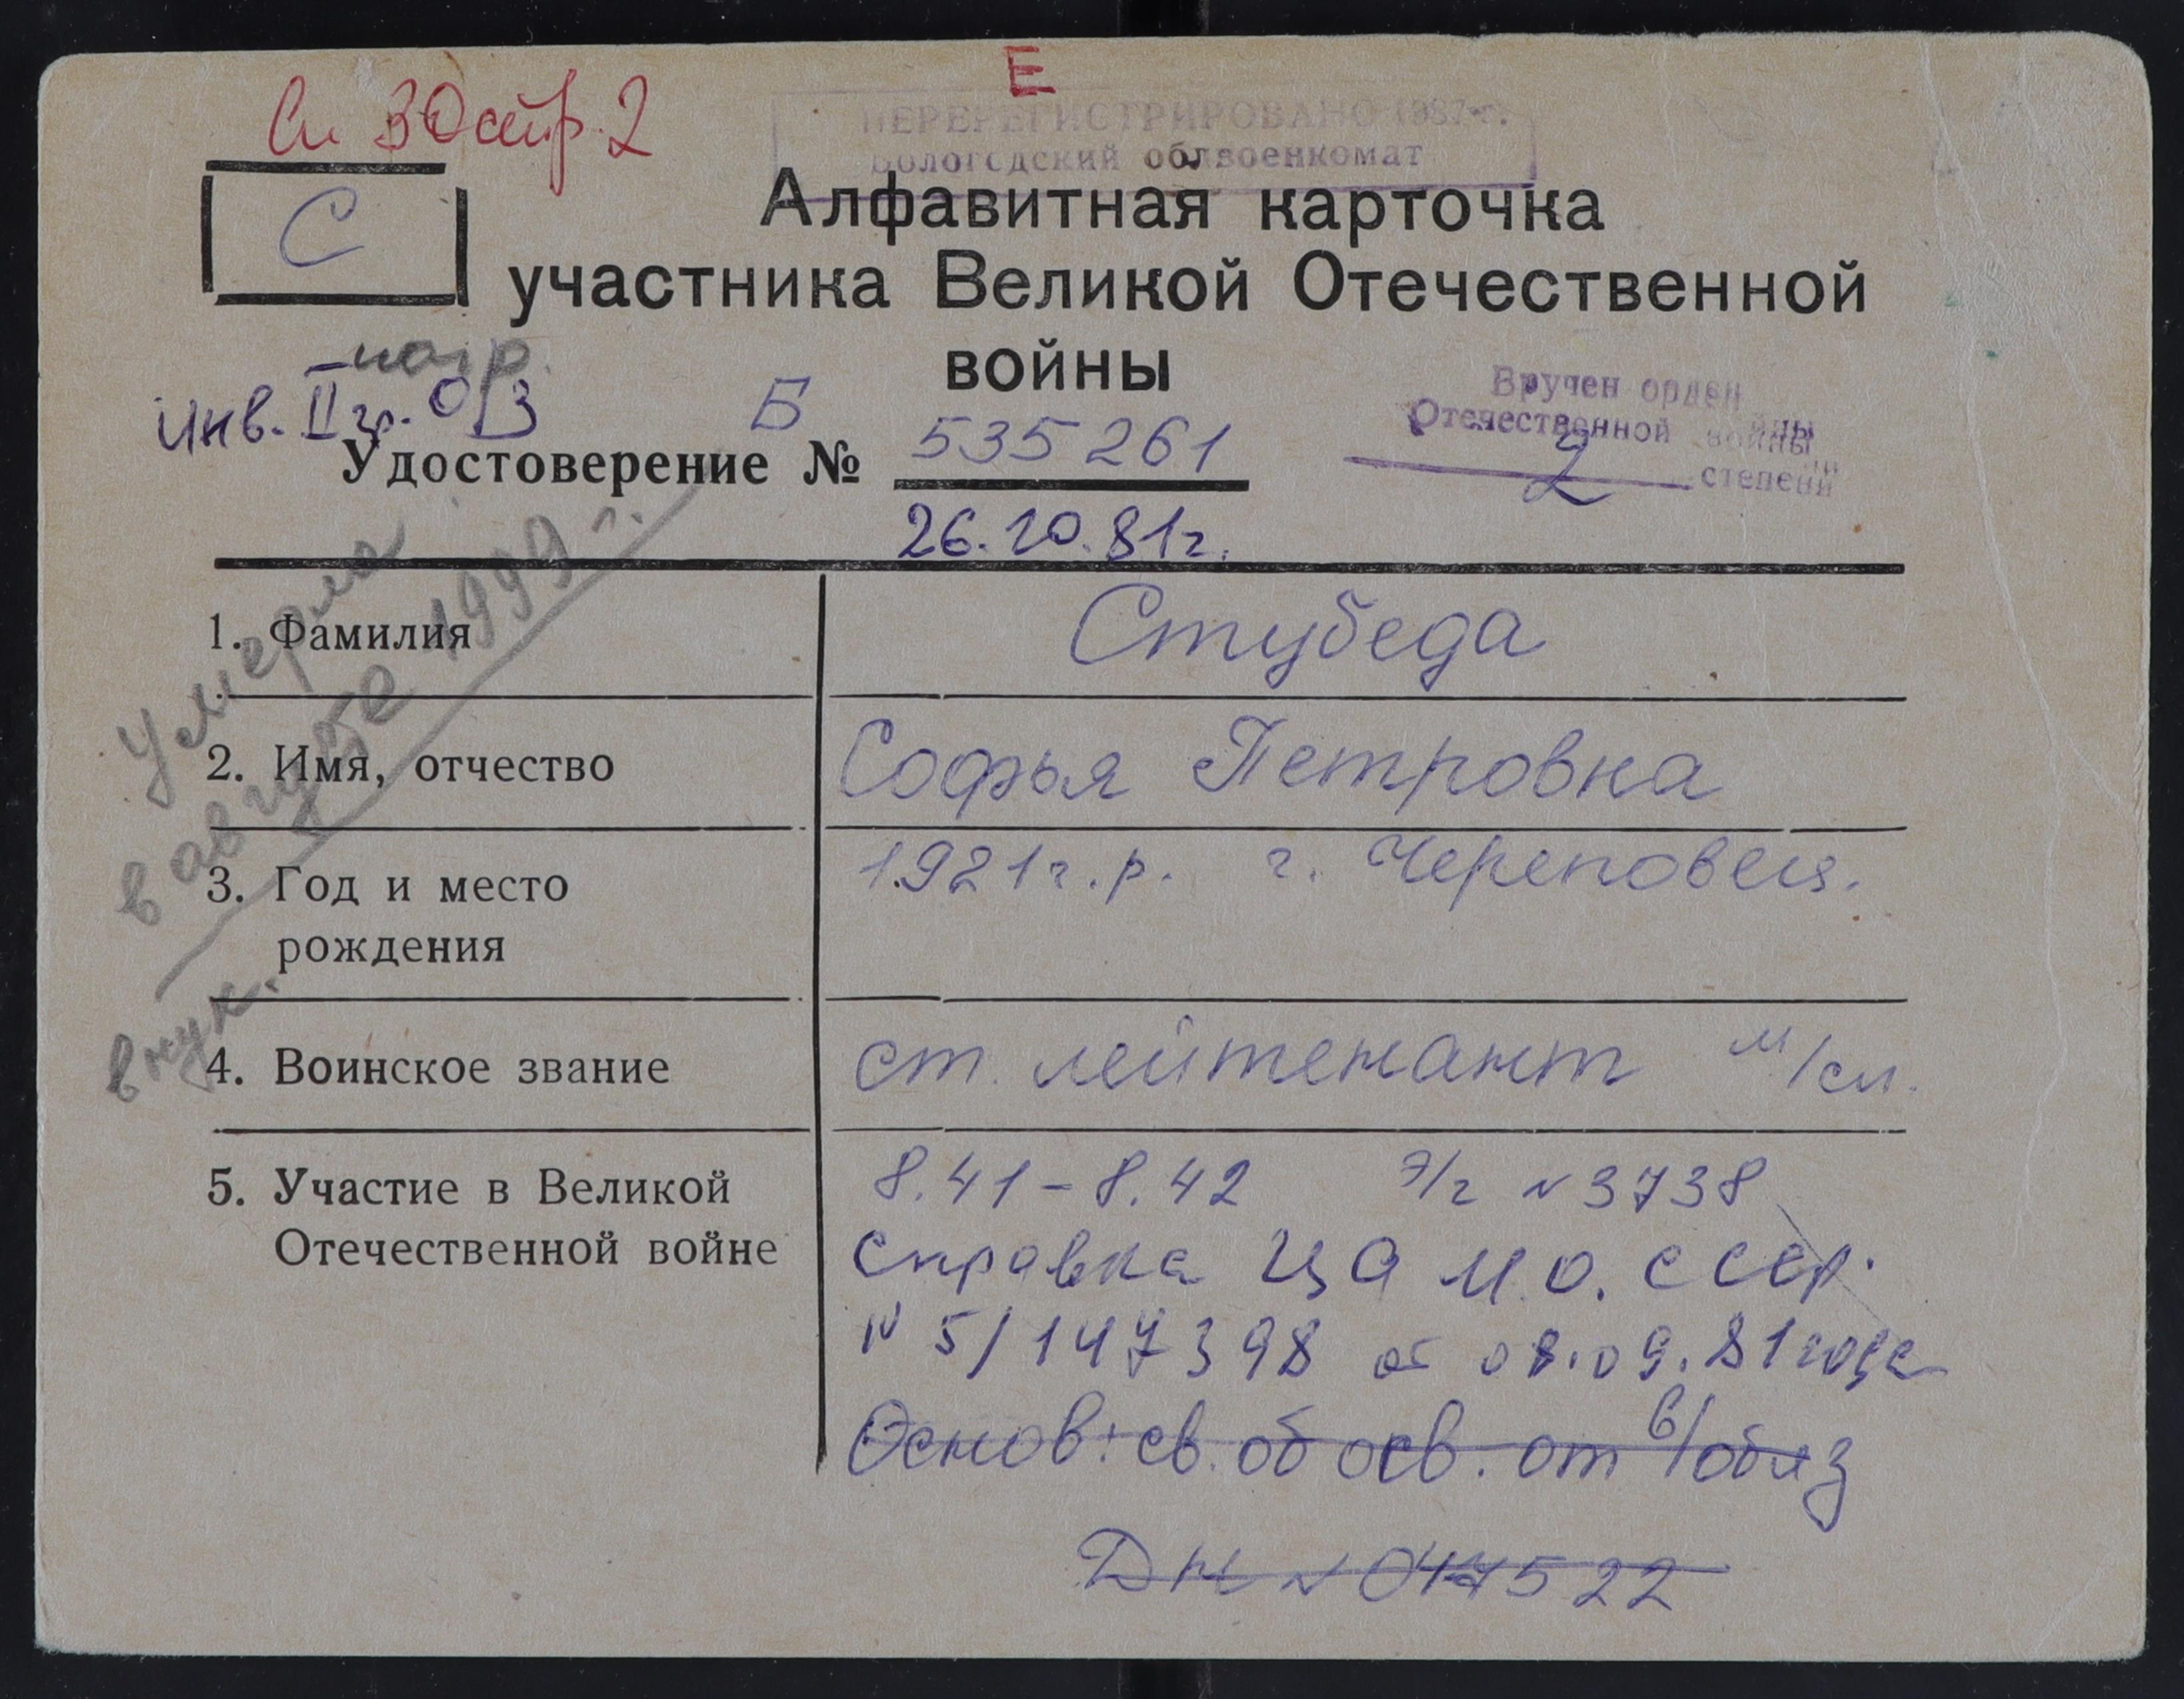 Сп 30 стр. 2
Е
ПЕРЕРЕГИСТРИРОВАНО 1987 г.
Вологодский облвоенкомат
С
Алфавитная карточка
участника Великой Отечественной
войны
инв. II гр. О/З
Б
Удостоверение № 535261
26.10.81г.
Вручен орден
Отечественной войны
2 степени
Умерла
в августе 1999 г.
внук.
1. Фамилия
Стубеда
2. Имя, отчество
Софья Петровна
3. Год и место
рождения
1921г.р. г. Череповец.
4. Воинское звание
ст. лейтенант м/сл.
5. Участие в Великой
Отечественной войне
8.41-8.42 э/г №3738
справка ЦА М.О. СССР.
№ 5/147398 от 08.09.81 года
Основ: св. об осв. от в/обяз